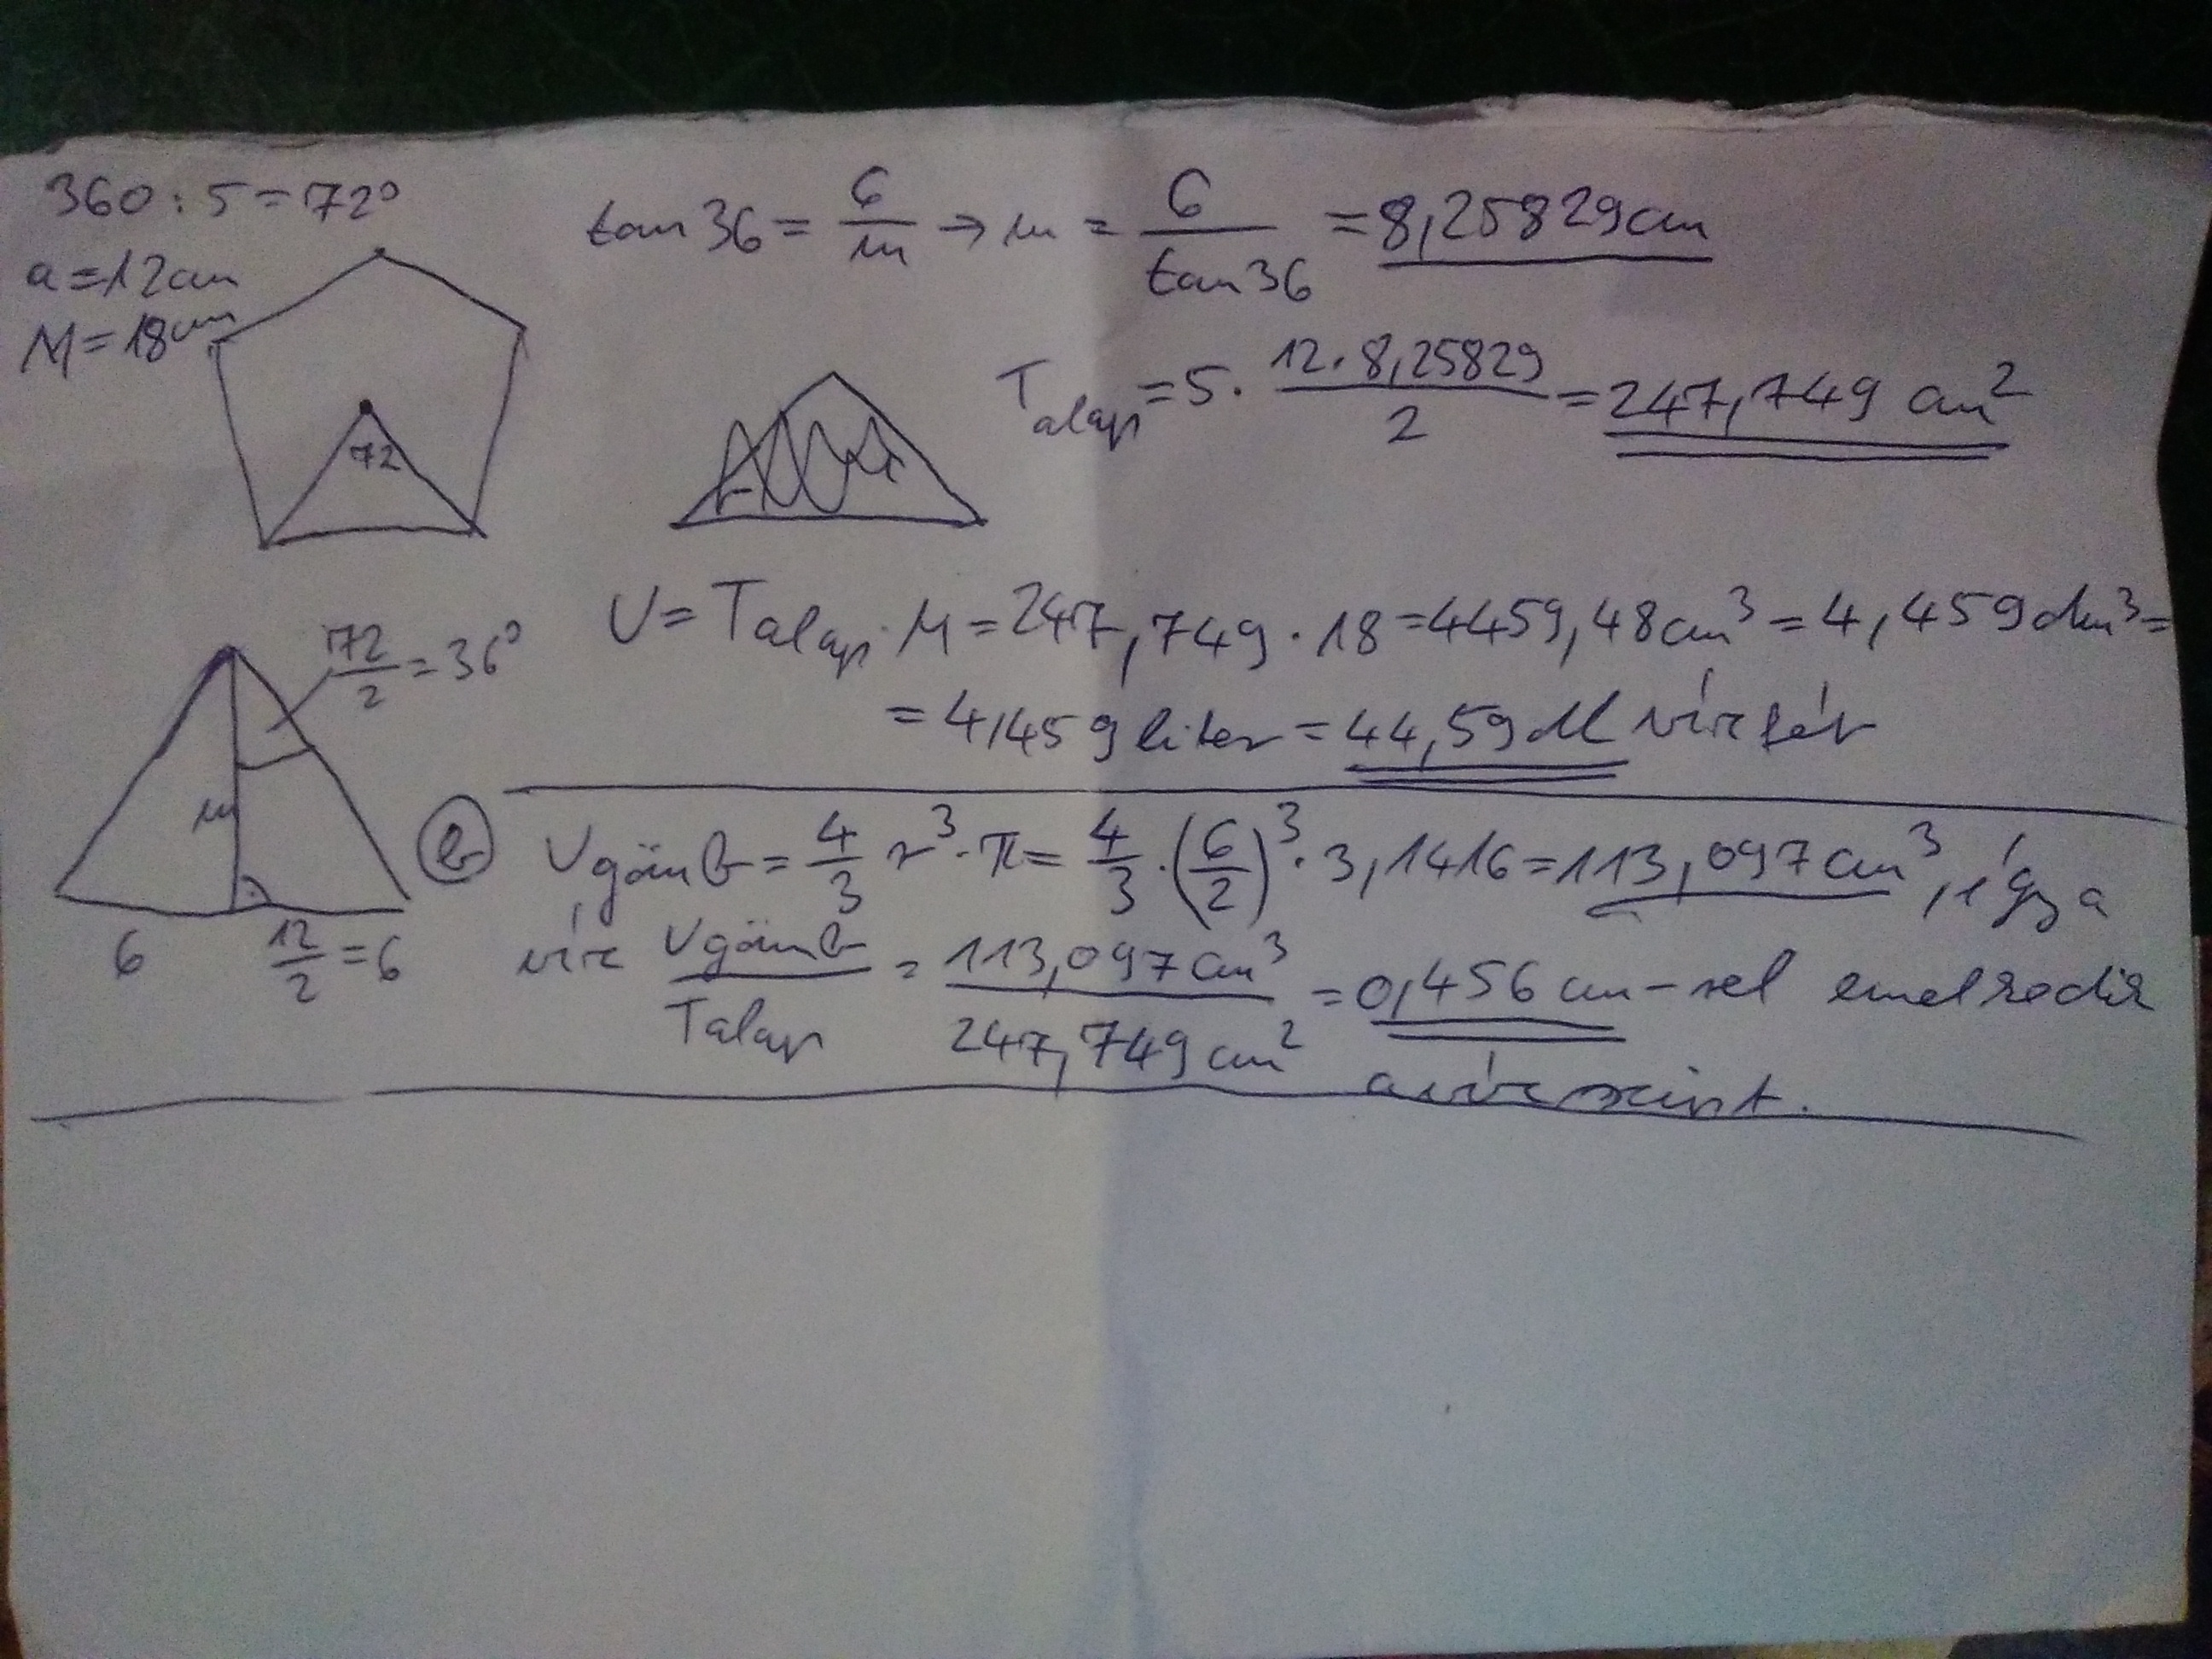 360 : 5 = 72°
a = 12 cm
M = 18 cm
72
tan 36 = 6/m → m = 6/tan 36 = 8,25829 cm
Talap = 5 · 12 · 8,25829/2 = 247,749 cm²
72/2 = 36°
m
6
12/2 = 6
V = Talap · M = 247,749 · 18 = 4459,48 cm³ = 4,459 dm³ =
= 4,459 liter = 44,59 dl víz fér
b Vgömb = 4/3 r³ · π = 4/3 · (6/2)³ · 3,1416 = 113,097 cm³, így a
víz Vgömb/Talap = 113,097 cm³/247,749 cm² = 0,456 cm-rel emelkedik
a vízszint.